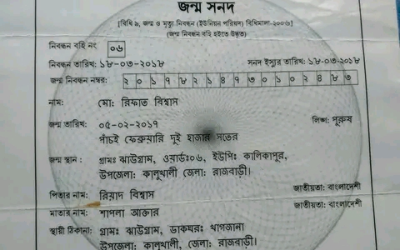 জন্ম সনদ
[বিধি ৯, জন্ম ও মৃত্যু নিবন্ধন (ইউনিয়ন পরিষদ) বিধিমালা-২০০৬]
(জন্ম নিবন্ধন বহি হইতে উদ্ধৃত)
নিবন্ধন বহি নং ০৬
নিবন্ধন তারিখ: ১৮-০৩-২০১৮ সনদ ইস্যুর তারিখ: ১৮-০৩-২০১৮
জন্ম নিবন্ধন নম্বর:
নাম: মো: রিফাত বিশ্বাস
জন্ম তারিখ: ০৫-০২-২০১৭ লিঙ্গ: পুরুষ
পাঁচই ফেব্রুয়ারি দুই হাজার সতের
জন্ম স্থান: গ্রামঃ ঝাউগ্রাম, ওয়ার্ডঃ০৬, ইউপিঃ কালিকাপুর,
উপজেলা: কালুখালী জেলা: রাজবাড়ী।
পিতার নাম: রিয়াদ বিশ্বাস জাতীয়তা: বাংলাদেশী
মাতার নাম: শাপলা আক্তার জাতীয়তা: বাংলাদেশী
স্থায়ী ঠিকানা: গ্রামঃ ঝাউগ্রাম, ডাকঘরঃ
উপজেলা: কালুখালী, জেলা: রাজবাড়ী।